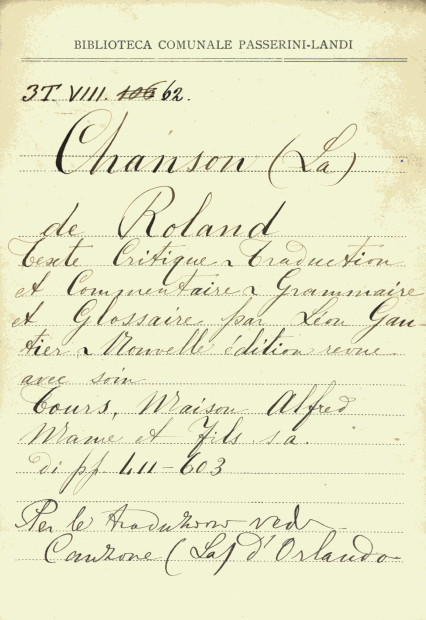 BIBLIOTECA COMUNALE PASSERINI-LANDI
3T. VIII. 106 62.
Chanson (La)
de Roland
Texte Critique ~ Traduction
et Commentaire ~ Grammaire
et Glossaire par Léon Gau-
tier ~ Nouvelle édition revue
avec soin
Tours, Maison Alfred
Mame et Fils s a.
di pp. LII-603
Per le traduzioni vedi
Canzone (La) d'Orlando